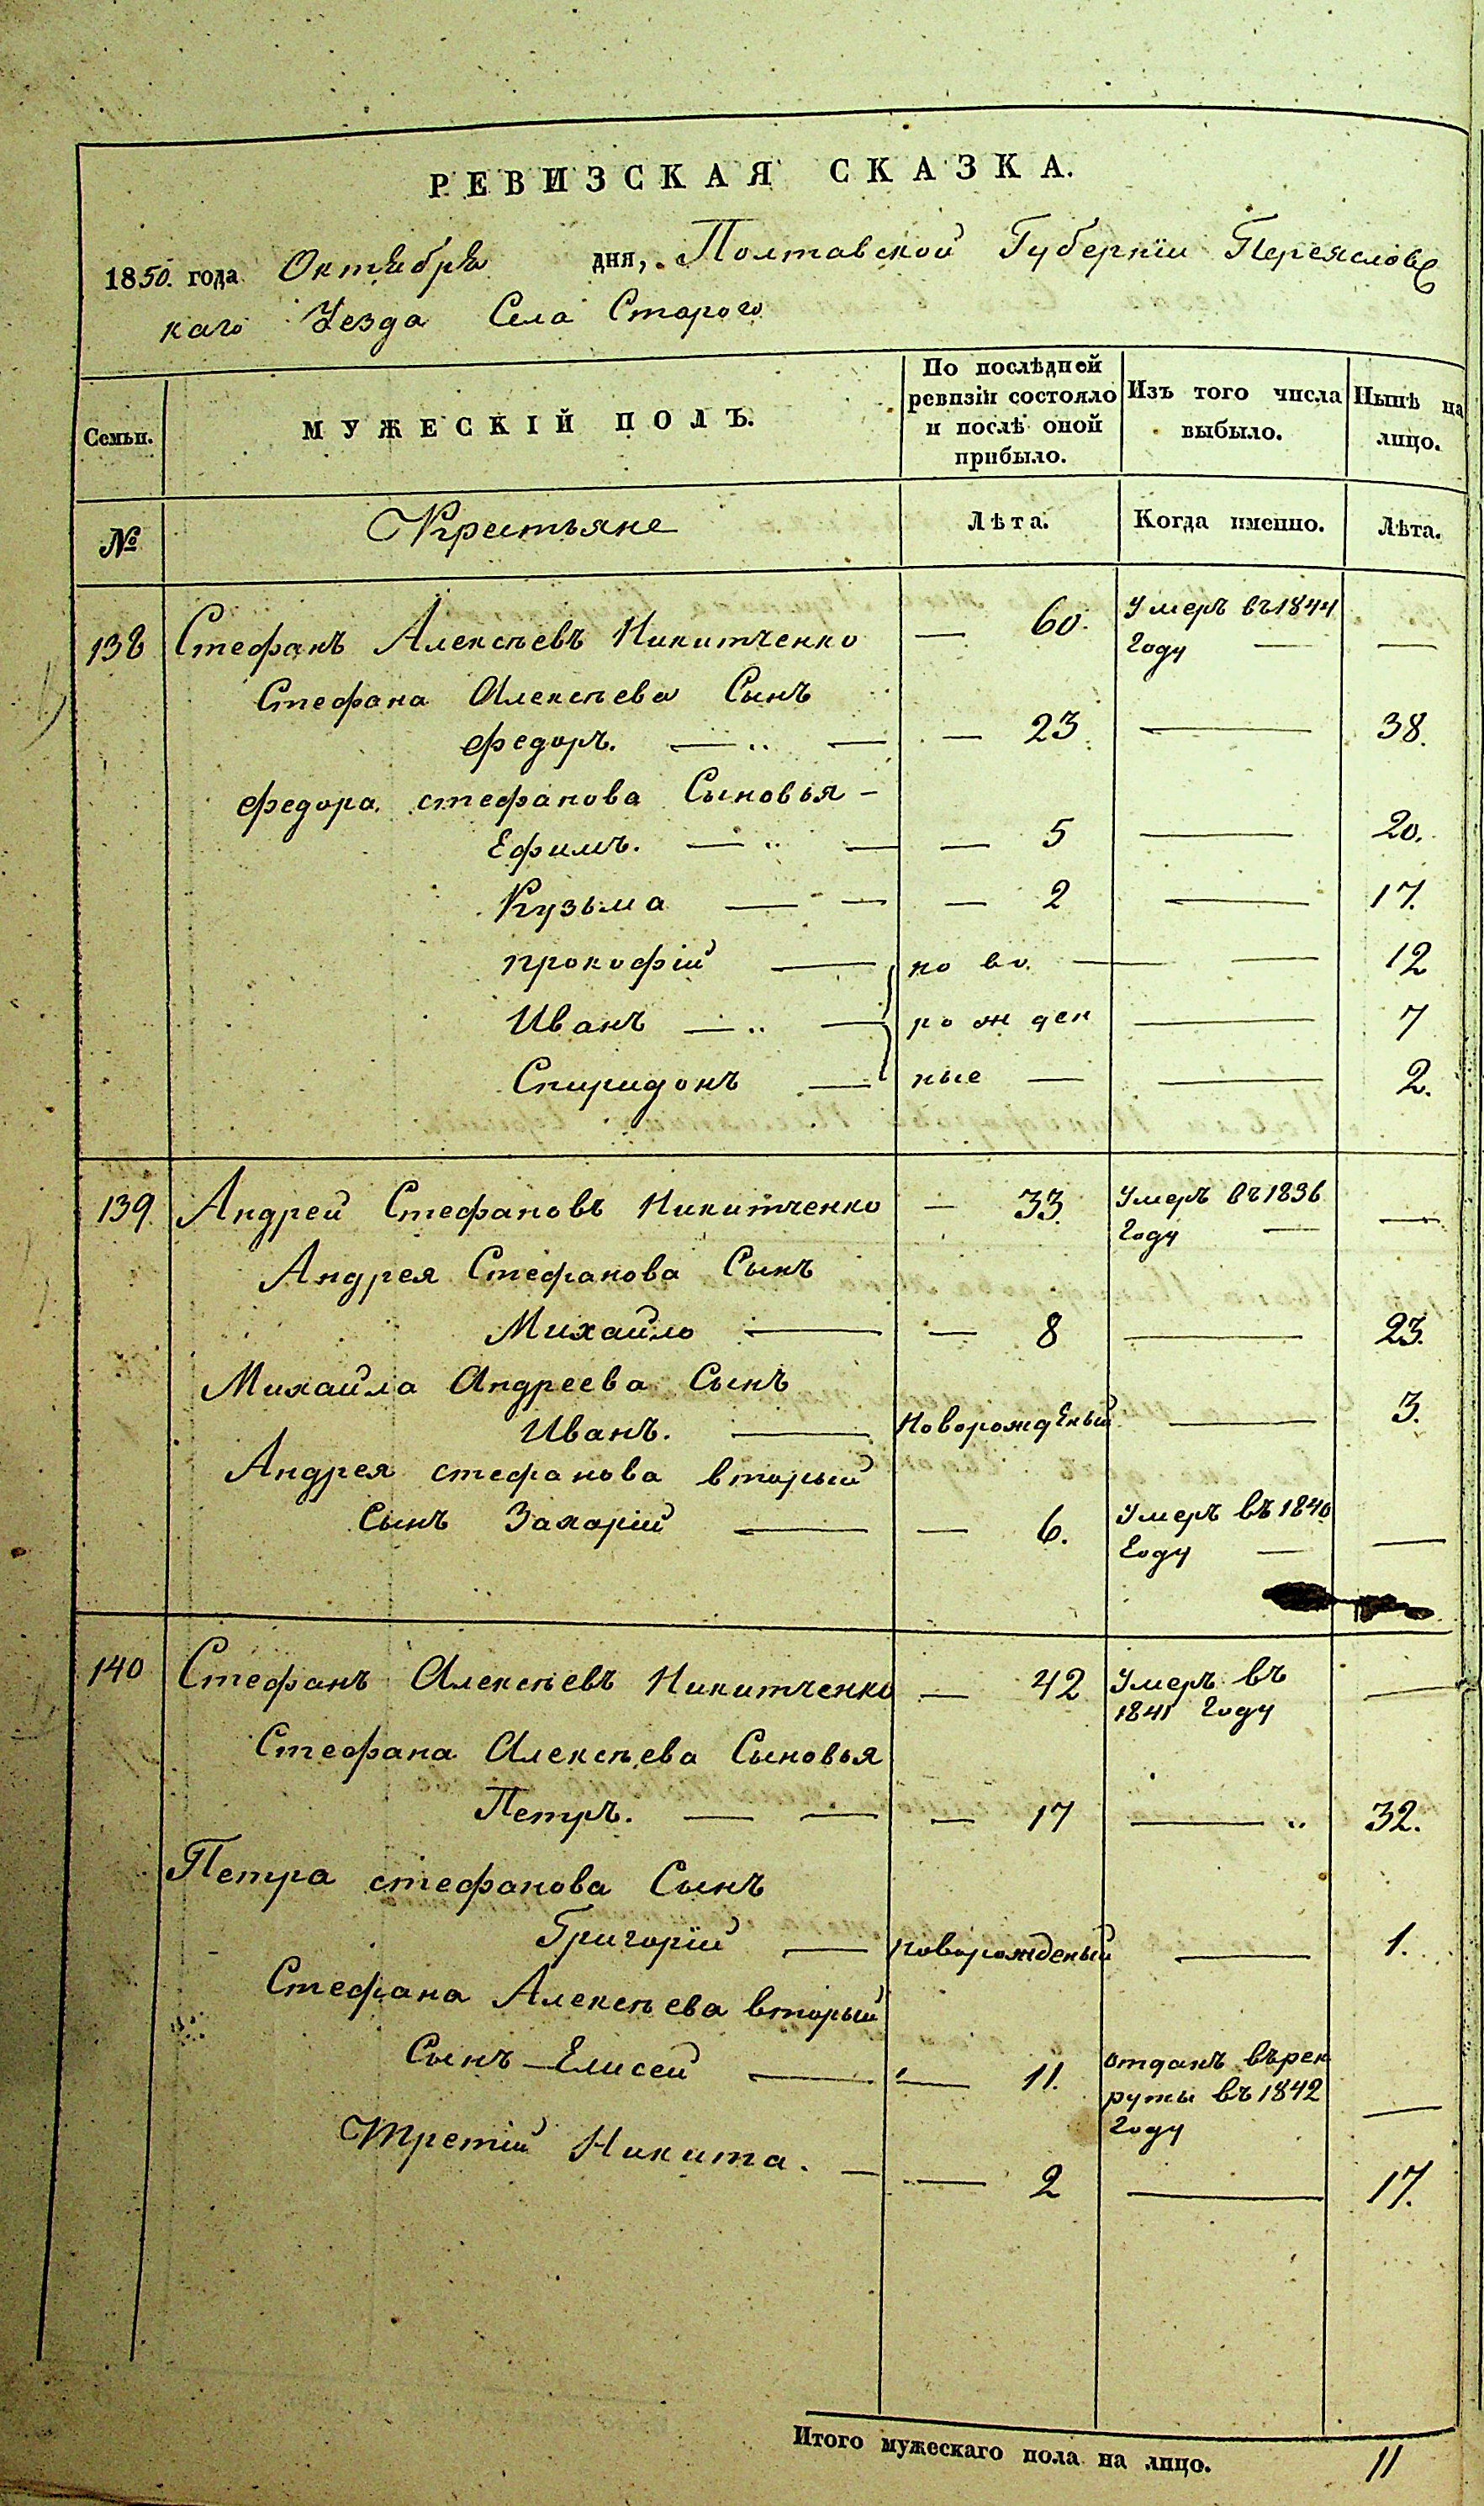 РЕВИЗСКАЯ СКАЗКА.
1850. года Октября дня, Полтавской Губернiи Переяслов
каго Уезда Села Старого
Семьи. МУЖЕСКIЙ ПОЛЪ. По послѣдней ревизiи состояло и послѣ оной прибыло. Изъ того числа выбыло. Нынѣ на лицо.
№ Крестьяне Лѣта. Когда именно. Лѣта.
138 Стефанъ Алексѣевъ Никитченко — 60. Умеръ въ 1844 Году — —
Стефана Алексѣева Сынъ
Федоръ. — — — 23 — 38.
Федора стефанова Сыновья —
Ефимъ. — — — 5 — 20.
Кузьма — — — 2 — 17.
прокофiй — но во. — — 12
Иванъ — — рожден — 7
Спиридонъ — ные — — 2.
139. Андрей Стефановъ Никитченко — 33. Умеръ въ 1836 Году — —
Андрея Стефанова Сынъ
Михайло — — 8 — 23.
Михайла Андреева Сынъ
Иванъ. — Новорожденый — 3.
Андрея стефанова вторый
Сынъ Захарiй — — 6. Умеръ въ 1840 Году — —
140 Стефанъ Алексѣевъ Никитченко — 42 Умеръ въ 1841 Году —
Стефана Алексѣева Сыновья
Петръ. — — — 17 — 32.
Петра стефанова Сынъ
Григорїй — новорожденый — 1.
Стефана Алексѣева вторый
Сынъ Елисей — — 11. отданъ върек руты въ 1842 Году —
Третiй Никита. — — 2 — 17.
Итого мужескаго пола на лицо. 11